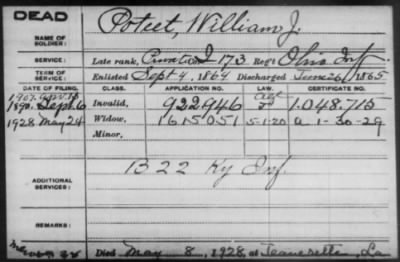 DEAD
NAME OF SOLDIER: Poteet, William J.
SERVICE: Late rank, Private I 173 Reg't Ohio Inf.
TERM OF SERVICE: Enlisted Sept 4, 1864 Discharged June 26, 1865
DATE OF FILING. CLASS. APPLICATION NO. LAW. CERTIFICATE NO.
1890 Sept. 6 Invalid, 922.946 1.048.713
1928 May 24 Widow, 1615051 5-1-20 a 1-30-29
Minor,
ADDITIONAL SERVICES: B 22 Ky Inf.
REMARKS:
Died May 8, 1928, at Jeanerette, La